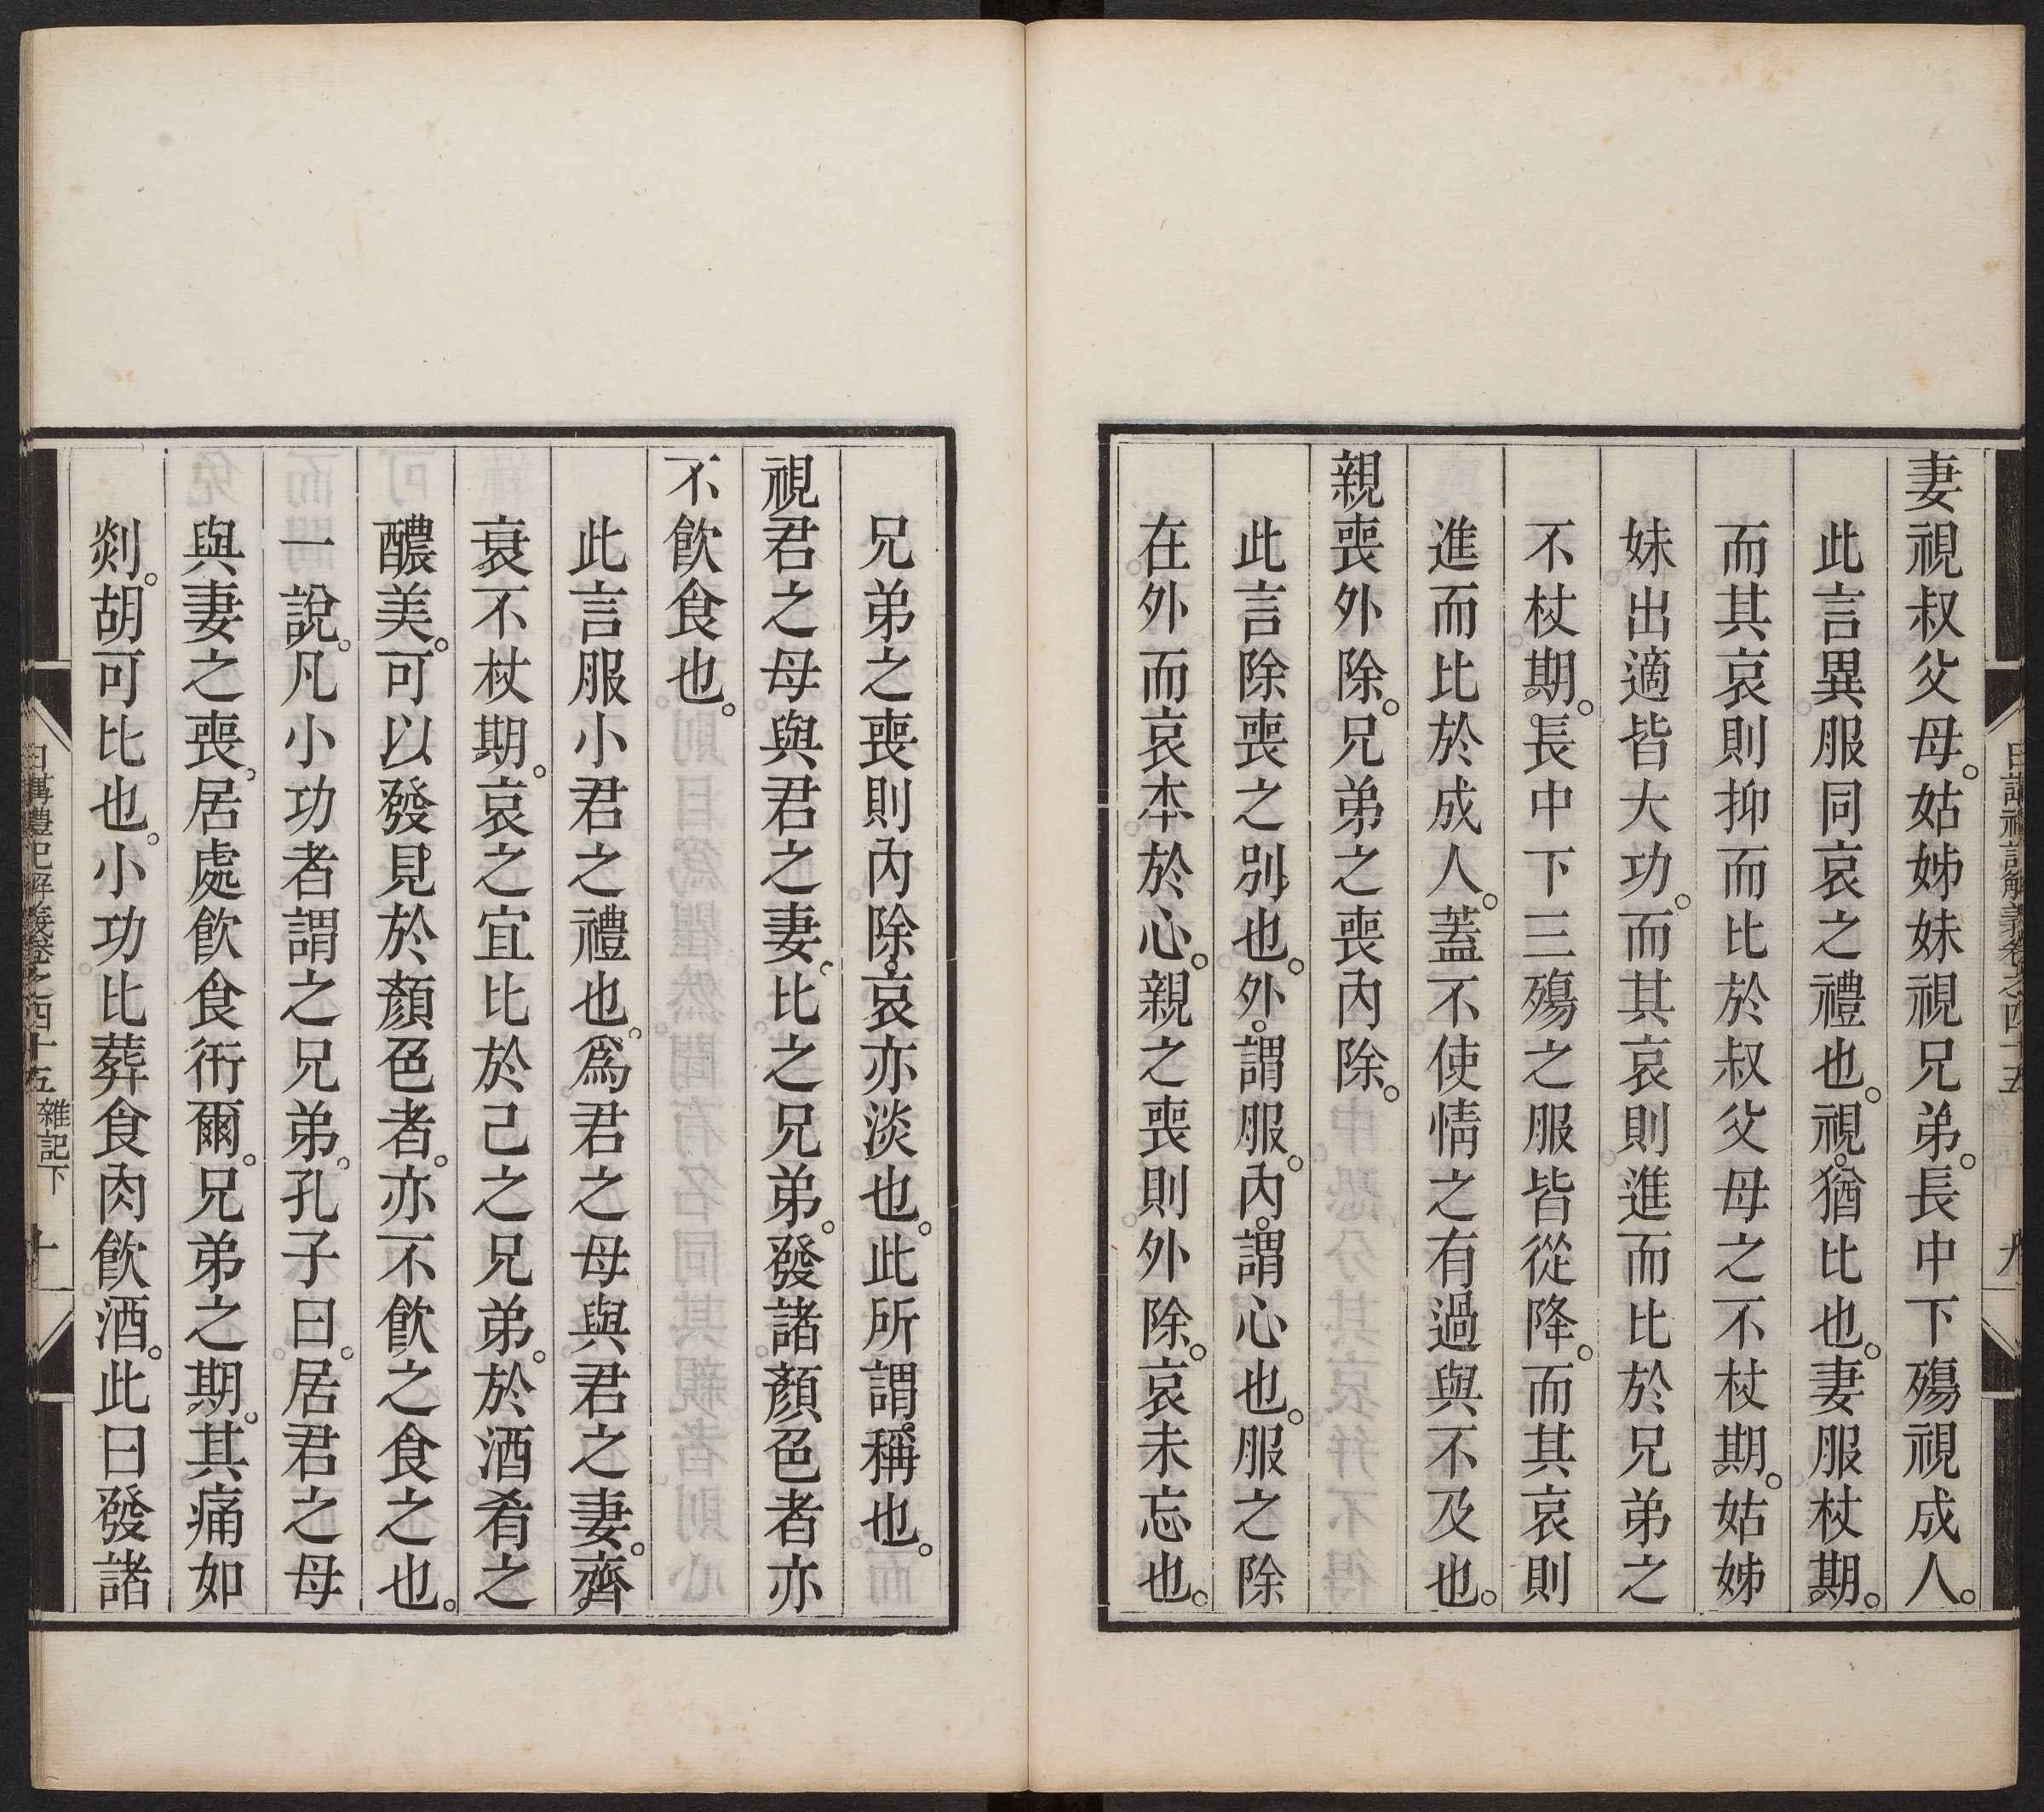 妻視叔父母。姑姊妹視兄弟。長中下殤視成人。
此言異服同哀之禮也。視。猶比也。妻服杖期。
而其哀則抑而比於叔父母之不杖期。姑姊
妹出適皆大功。而其哀則進而比於兄弟之
不杖期。長中下三殤之服皆從降。而其哀則
進而比於成人。蓋不使情之有過與不及也。
親喪外除。兄弟之喪內除。
此言除喪之別也。外。謂服。內。謂心也。服之除
在外而哀本於心。親之喪則外除。哀未忘也。
兄弟之喪則內除。哀亦淡也。此所謂稱也。
視君之母與君之妻。比之兄弟。發諸顏色者亦
不飲食也。
此言服小君之禮也。爲君之母與君之妻。齊
衰不杖期。哀之宜比於己之兄弟。於酒肴之
醲美。可以發見於顏色者。亦不飲之食之也。
一說。凡小功者謂之兄弟。孔子曰。居君之母
與妻之喪。居處飲食衎爾。兄弟之期。其痛如
剡。胡可比也。小功比葬食肉飲酒。此曰發諸
日講禮記解義卷之四十五 雜記下 十